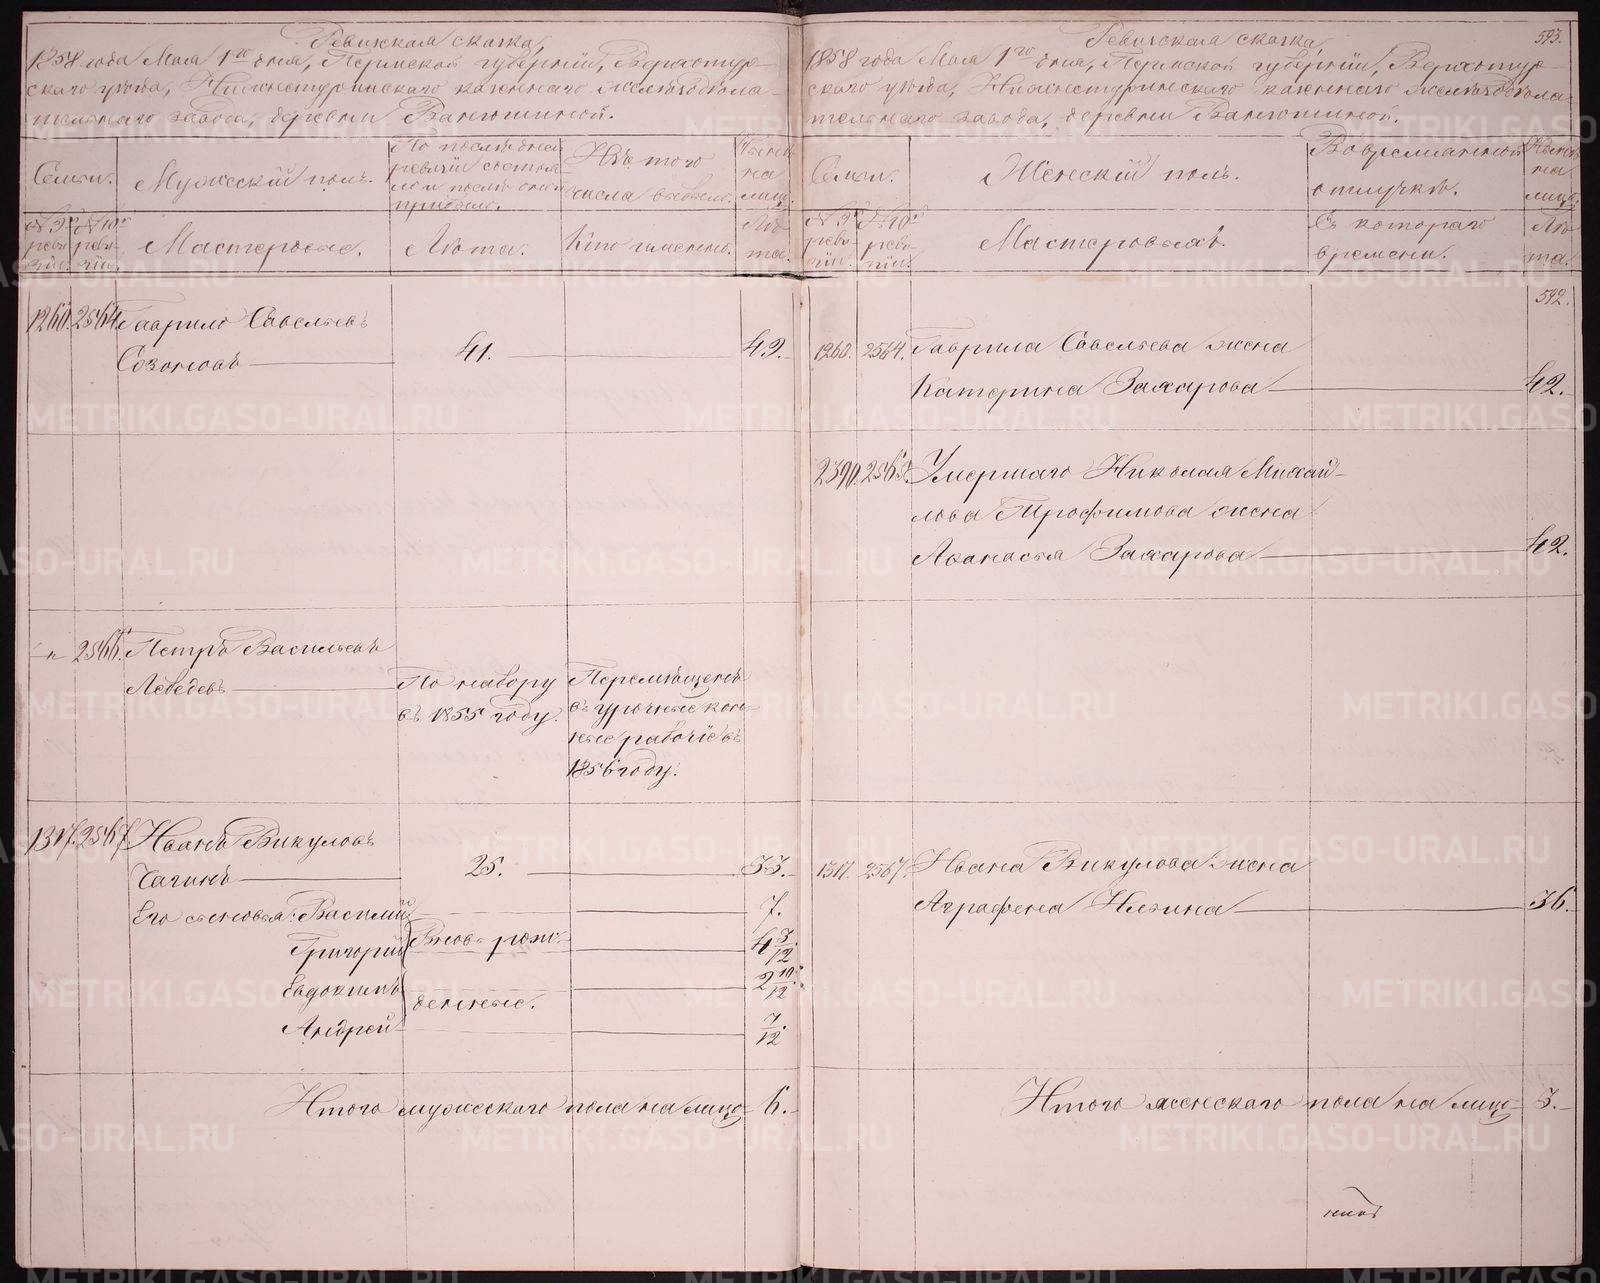 Ревизская сказка,
1858 года Мая 1го дня, Пермской губернiи, Верхотур-
скаго уѣзда, Нижнетуринскаго казеннаго железодѣла-
тельнаго завода, деревни Ванюшиной.
Семьи.
Мужескiй полъ.
По послѣдней
ревизiи состоя-
ло и послѣ оной
прибыло.
Изъ того
числа выбыло.
Нынѣ
на
лицо.
№ 9й
реви-
зiи.
№ 10й
реви-
зiи.
Мастеровые.
Лѣта.
Кто именно.
Лѣ
та.
1260. 2564. Гаврило Савельевъ
Созоновъ 41. 49.
" 2566. Петръ Васильевъ
Лебедевъ
По набору
въ 1855 году.
Перемѣщенъ
въ урочные кон-
ные рабочiе въ
1856 году.
1317. 2567. Иванъ Викуловъ
Чагинъ 25. 33.
Его сыновья: Василiй 7.
Григорiй Вновь рож- 4 3/12
Евдокимъ 2 10/12
денные.
Андрей 7/12
Итого мужескаго пола на лицо 6.
593.
Ревизская сказка,
1858 года Мая 1го дня, Пермской губернiи, Верхотур-
скаго уѣзда, Нижнетуринскаго казеннаго железодѣла-
тельнаго завода, деревни Ванюшиной.
Семьи.
Женскiй полъ.
Во временной
отлучкѣ.
Нынѣ
на
лицо.
№ 9й
реви-
зiи.
№ 10й
реви-
зiи.
Мастеровыхъ.
Съ котораго
времени.
Лѣ
та.
592.
1260. 2564. Гаврила Савельева жена
Катерина Захарова 42.
2390. 2565. Умершаго Николая Михай-
лова Трофимова жена
Афанасья Захарова 42.
1317. 2567. Ивана Викулова жена
Аграфена Ильина 36.
Итого женскаго пола на лицо 3.
METRIKI.GASO-URAL.RU